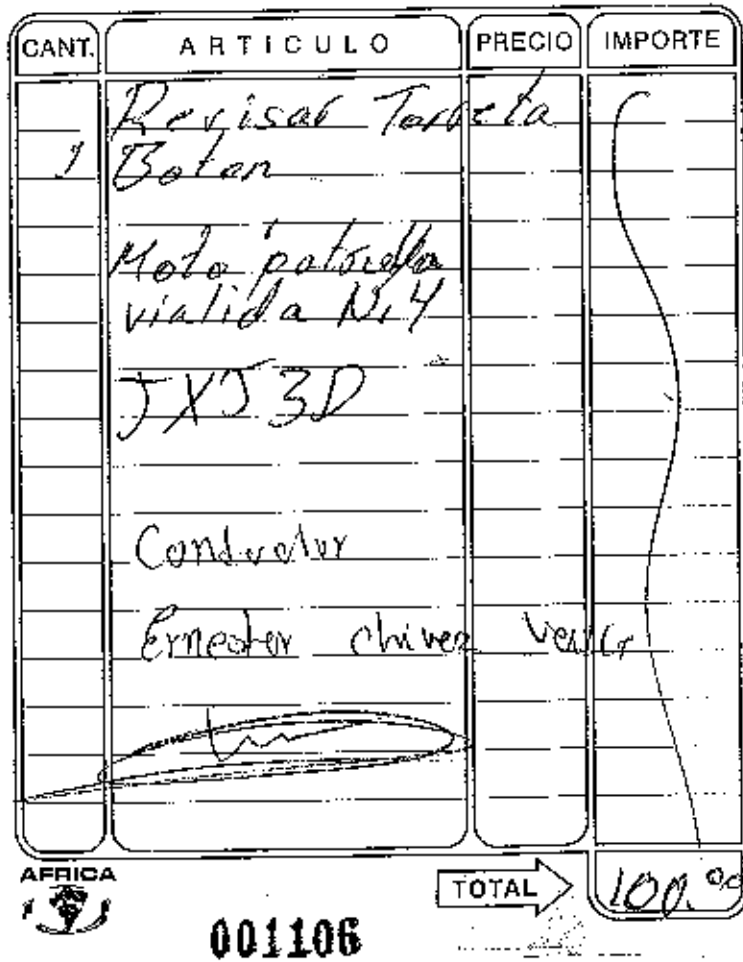 CANT. ARTICULO PRECIO IMPORTE
Revisar Torreta
1 Boton
Moto patrulla
vialida N. 4
JXJ3D
Conductor
Ernesto chivez
AFRICA
TOTAL 100.00
001106